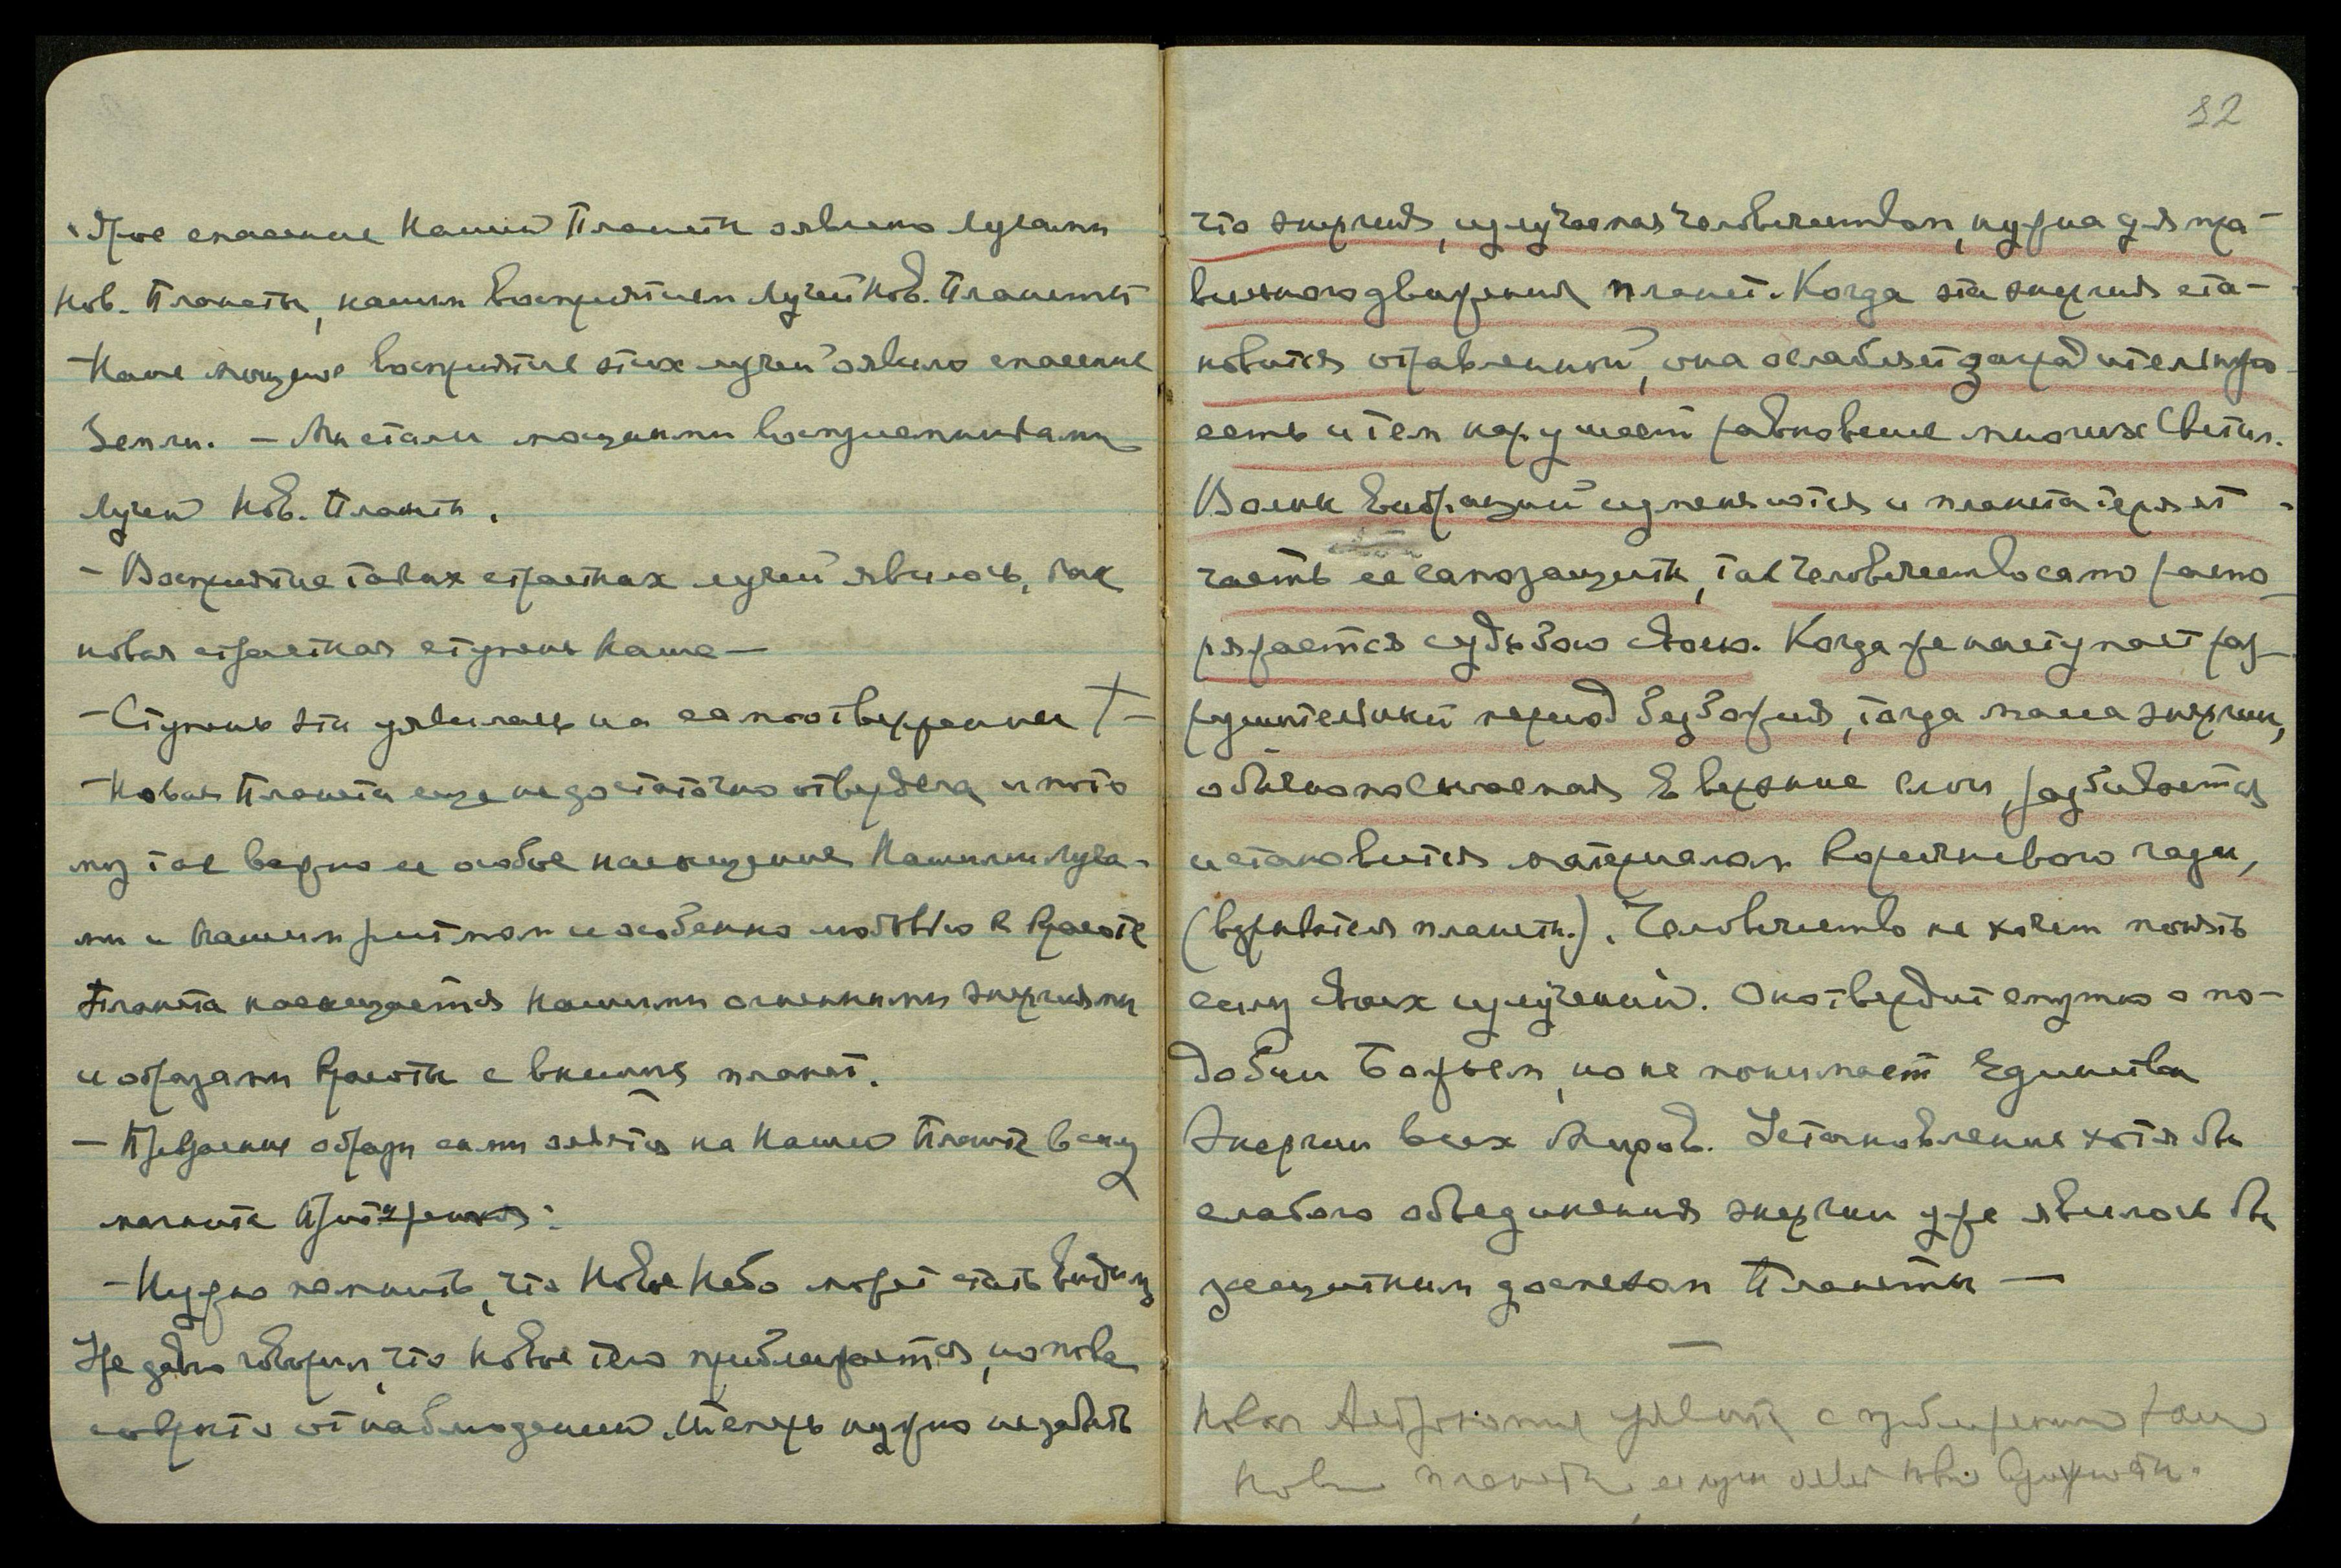 Ярое спасение Нашей Планеты оявлено Лучами
Нов. Планеты, нашим восприятием Лучей Нов. Планеты
– Наше мощное восприятие этих лучей оявило спасение
Земли. – Мы стали мощными восприемниками
Лучей Нов. Планеты.
– Восприятие таких страстных лучей явилось, как
новая страстная ступень Наша –
– Ступень эта уявилась на самоотвержении
– Новая Планета еще не достаточно отвердела и пото
му так важно ее особое насыщение Нашими Луча-
ми и Нашим ритмом и особенно любовью к Красоте
Планета насыщается Нашими огненными энергиями
и образами Красоты с высших планет.
– Прекрасные образы сами оявятся на Нашей Планете в силу
магнита Притяжения:
– Нужно помнить, что Новое Небо может стать видиму
Уже давно говорил, что Новое тело приближается, но пока
сокрыто от наблюдений. Теперь нужно не забыть
32
что энергия, излучаемая человечеством, нужна для пра-
вильного движения планет. Когда эта энергия ста-
новится отравленной, она ослабляет заградительную
сеть и тем нарушает равновесие многих Светил.
Волны вибраций изменяются и планета теряет
часть ее самозащиты, так человечество само распо
ряжается судьбою своею. Когда же наступает раз-
рушительный период безбожия, тогда масса энергии,
обычно посылаемая в верхние слои, разбивается
и становится материалом коричневого газа,
(взрывателя планеты.). Человечество не хочет понять
силу своих излучений. Оно твердит смутно о по-
добии Божьем, но не понимает Единства
Энергии всех Миров. Установление хотя бы
слабого объединения энергии уже явилось бы
защитным доспехом Планеты —
Новая Астрономия уявится с приближением
Новой планеты,